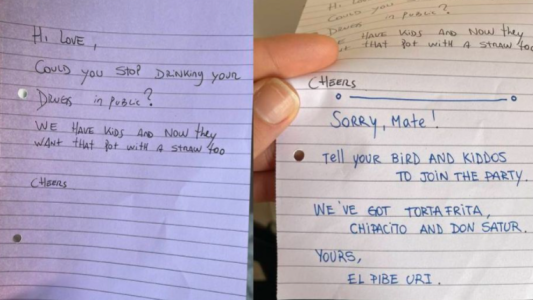 Hi LOVE,
COULD YOU STOP DRINKING YOUR
DRUGS in PUBLIC?
WE HAVE KIDS AND NOW they
WANT THAT POT WITH A STRAW TOO
CHEERS
Hi
COULD YOU
DRUGS in PUBLIC?
WE HAVE KIDS AND NOW they
THAT POT WITH A STRAW TOO
CHEERS
SORRY, MATE!
TELL YOUR BIRD AND KIDDOS
TO JOIN THE PARTY.
WE'VE GOT TORTA FRITA,
CHIPACITO AND DON SATUR.
YOURS,
EL PIBE URI.